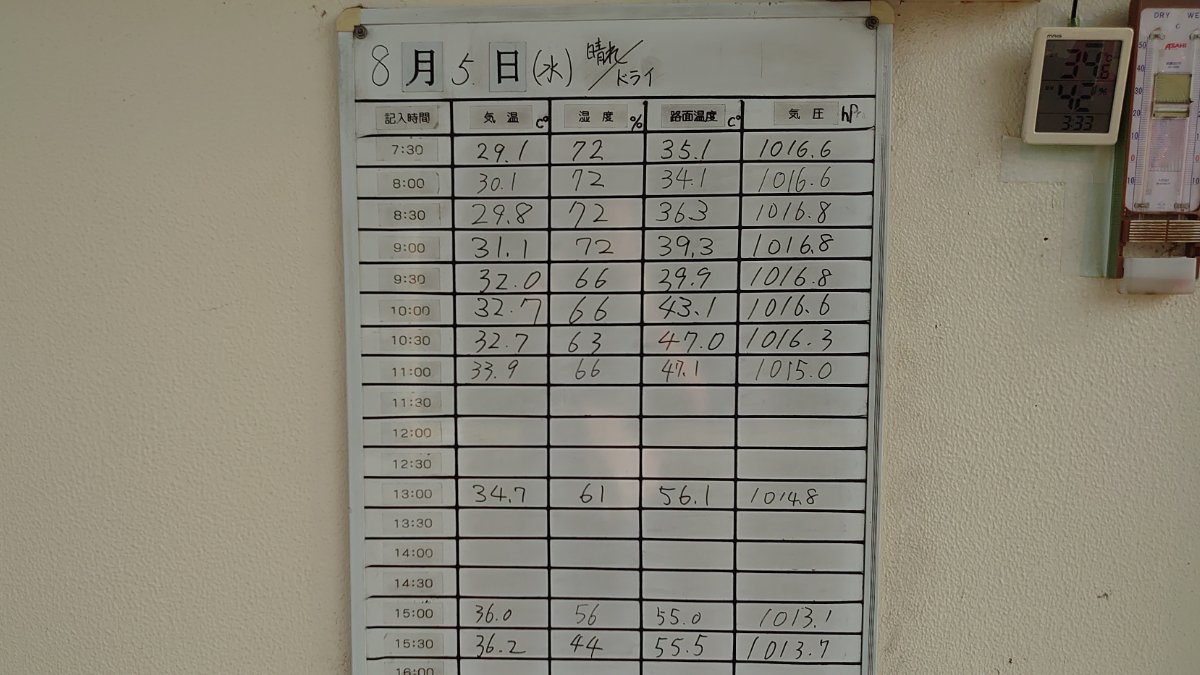 8月5日(水) 晴れ/ドライ
記入時間 気温 C° 湿度 % 路面温度 C° 気圧 hPa
7:30 29.1 72 35.1 1016.6
8:00 30.1 72 34.1 1016.6
8:30 29.8 72 36.3 1016.8
9:00 31.1 72 39.3 1016.8
9:30 32.0 66 39.9 1016.8
10:00 32.7 66 43.1 1016.6
10:30 32.7 63 47.0 1016.3
11:00 33.9 66 47.1 1015.0
11:30
12:00
12:30
13:00 34.7 61 56.1 1014.8
13:30
14:00
14:30
15:00 36.0 56 55.0 1013.1
15:30 36.2 44 55.5 1013.7
16:00
42 %
3:33
DRY WE
C
ASAHI